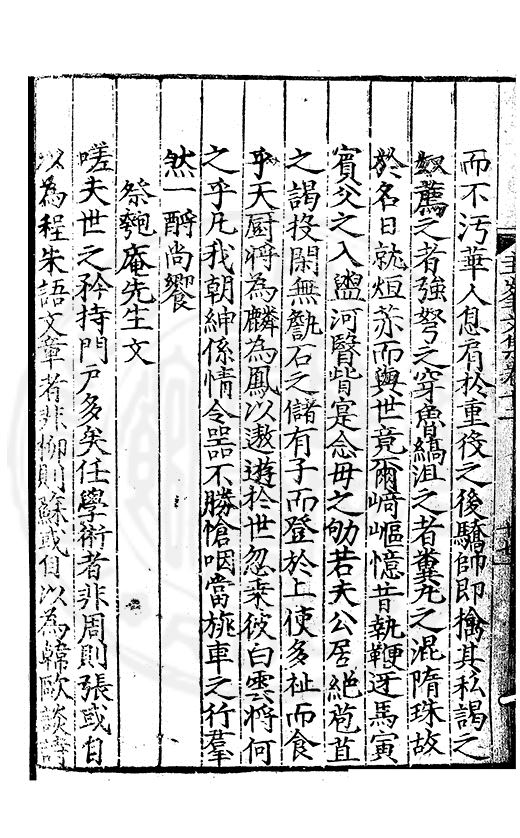 而不汚華人息肩於重役之後驕帥即擒其私謁之
馭鷙之者強弩之穿魯縞沮之者糞丸之混隋珠故
於名日就烜赤而與世竟爾崎嶇憶昔執鞭迓馬寅
賓父之入盥河醫眥寔念毋之劬若夫公居絕苞苴
之謁投閑無甔石之儲有子而登於上使多祉而食
乎天厨將為麟為鳳以遨遊於世忽乘彼白雲將何
之乎凡我朝紳係情令器不勝愴咽當旐車之行羣
然一酹尚饗
祭匏庵先生文
嗟夫世之矜持門戶多矣任學術者非周則張或自
以為程朱語文章者非柳則蘇或自以為韓歐談詩